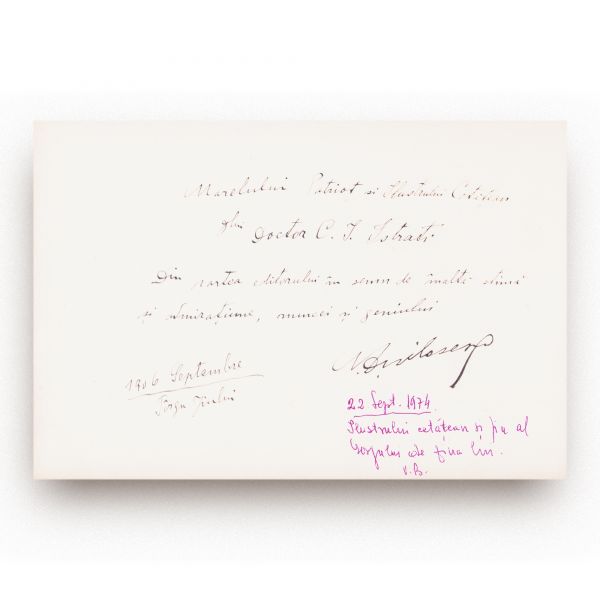 Marelului Patriot și Ilustrului Cetățean
Dlui Doctor C. I. Istrati
Din partea editorului în semn de înaltă stimă
și admirațiune, muncei și geniului
1906 Septembre
Târgu Jiului
22 Sept. 1974.
Ilustrului cetățean și fiu al
Gorjului de
V.B.